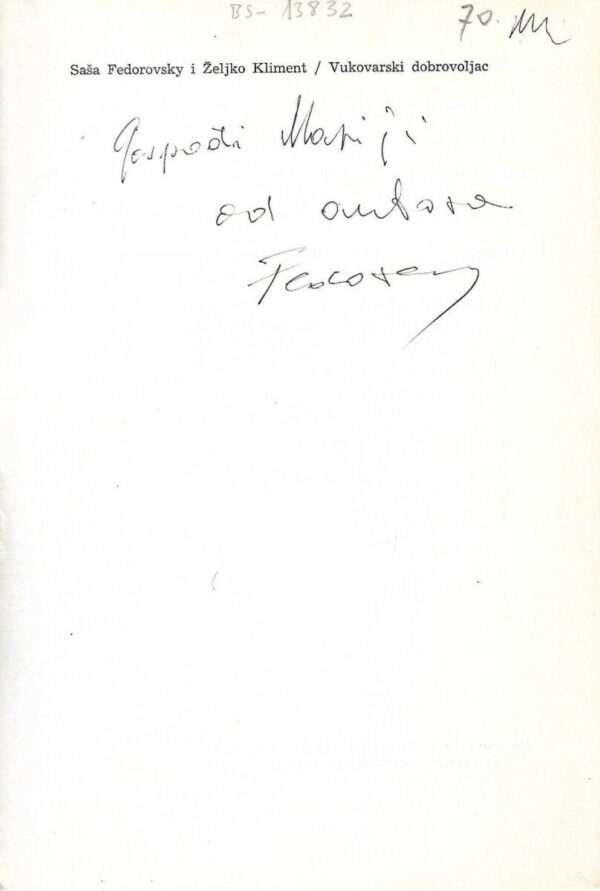 BS-13832
70.
Saša Fedorovsky i Željko Kliment / Vukovarski dobrovoljac
Gospođi Mariji
od autora